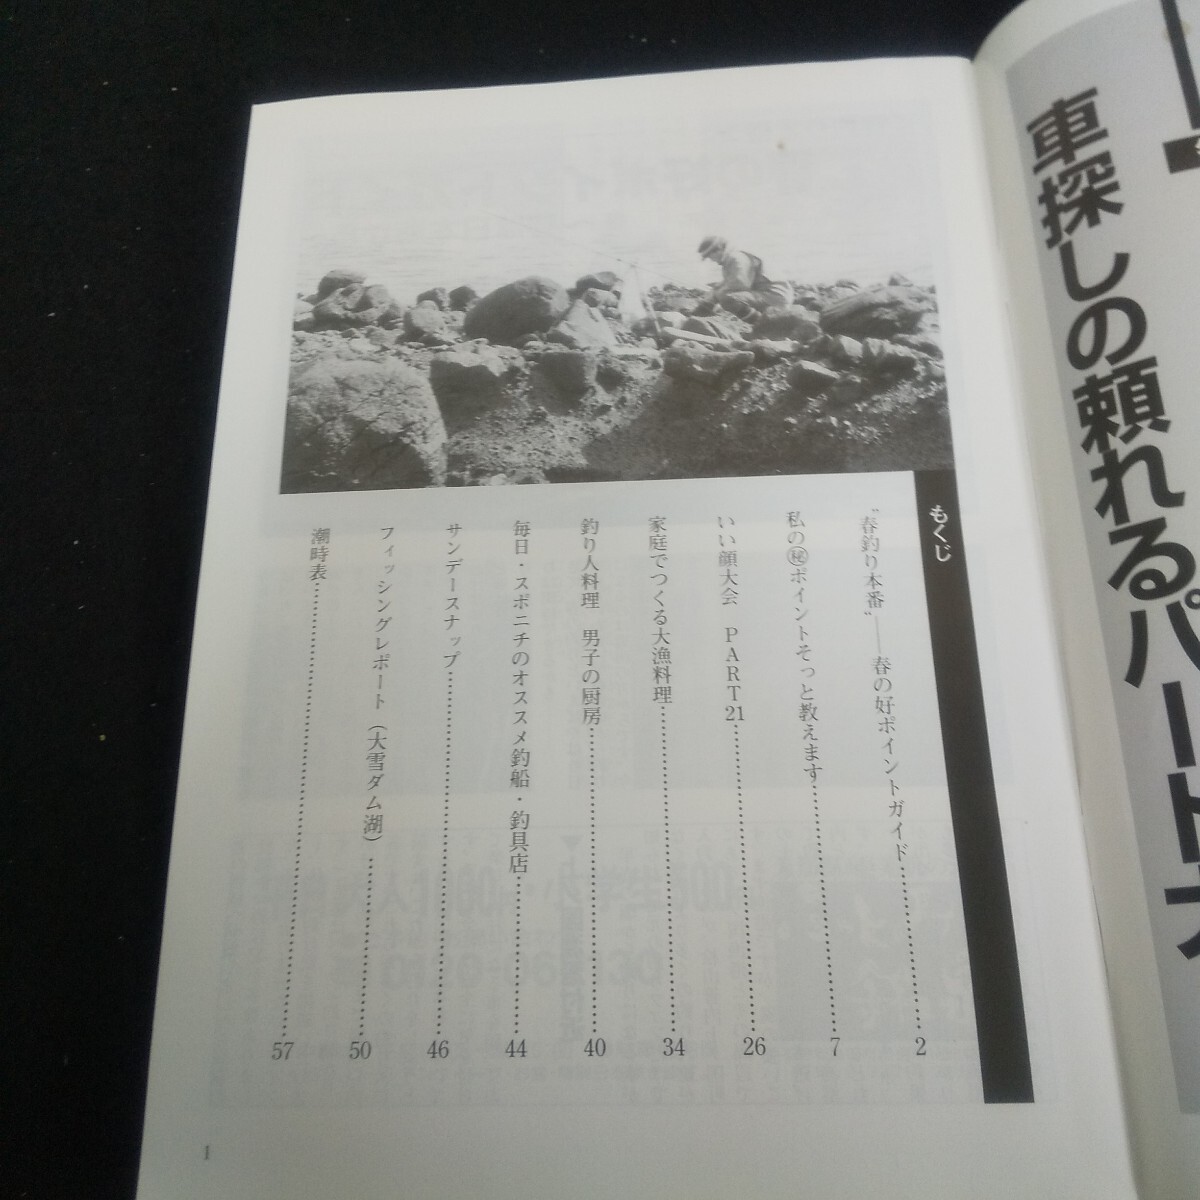 車探しの頼れるパートナー
もくじ
〝春釣り本番〟――春の好ポイントガイド…………2
私の㊙ポイントそっと教えます…………7
いい顔大会　PART21…………26
家庭でつくる大漁料理…………34
釣り人料理　男子の厨房…………40
毎日・スポニチのオススメ釣船・釣具店…………44
サンデースナップ…………46
フィッシングレポート（大雪ダム湖）…………50
潮時表…………57
1